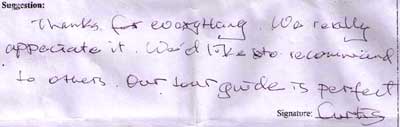 Suggestion:
Thanks for everything. We really
appeciate it. We'd like to recommend
to others. Our tour guide is perfect
Signature: Curtis